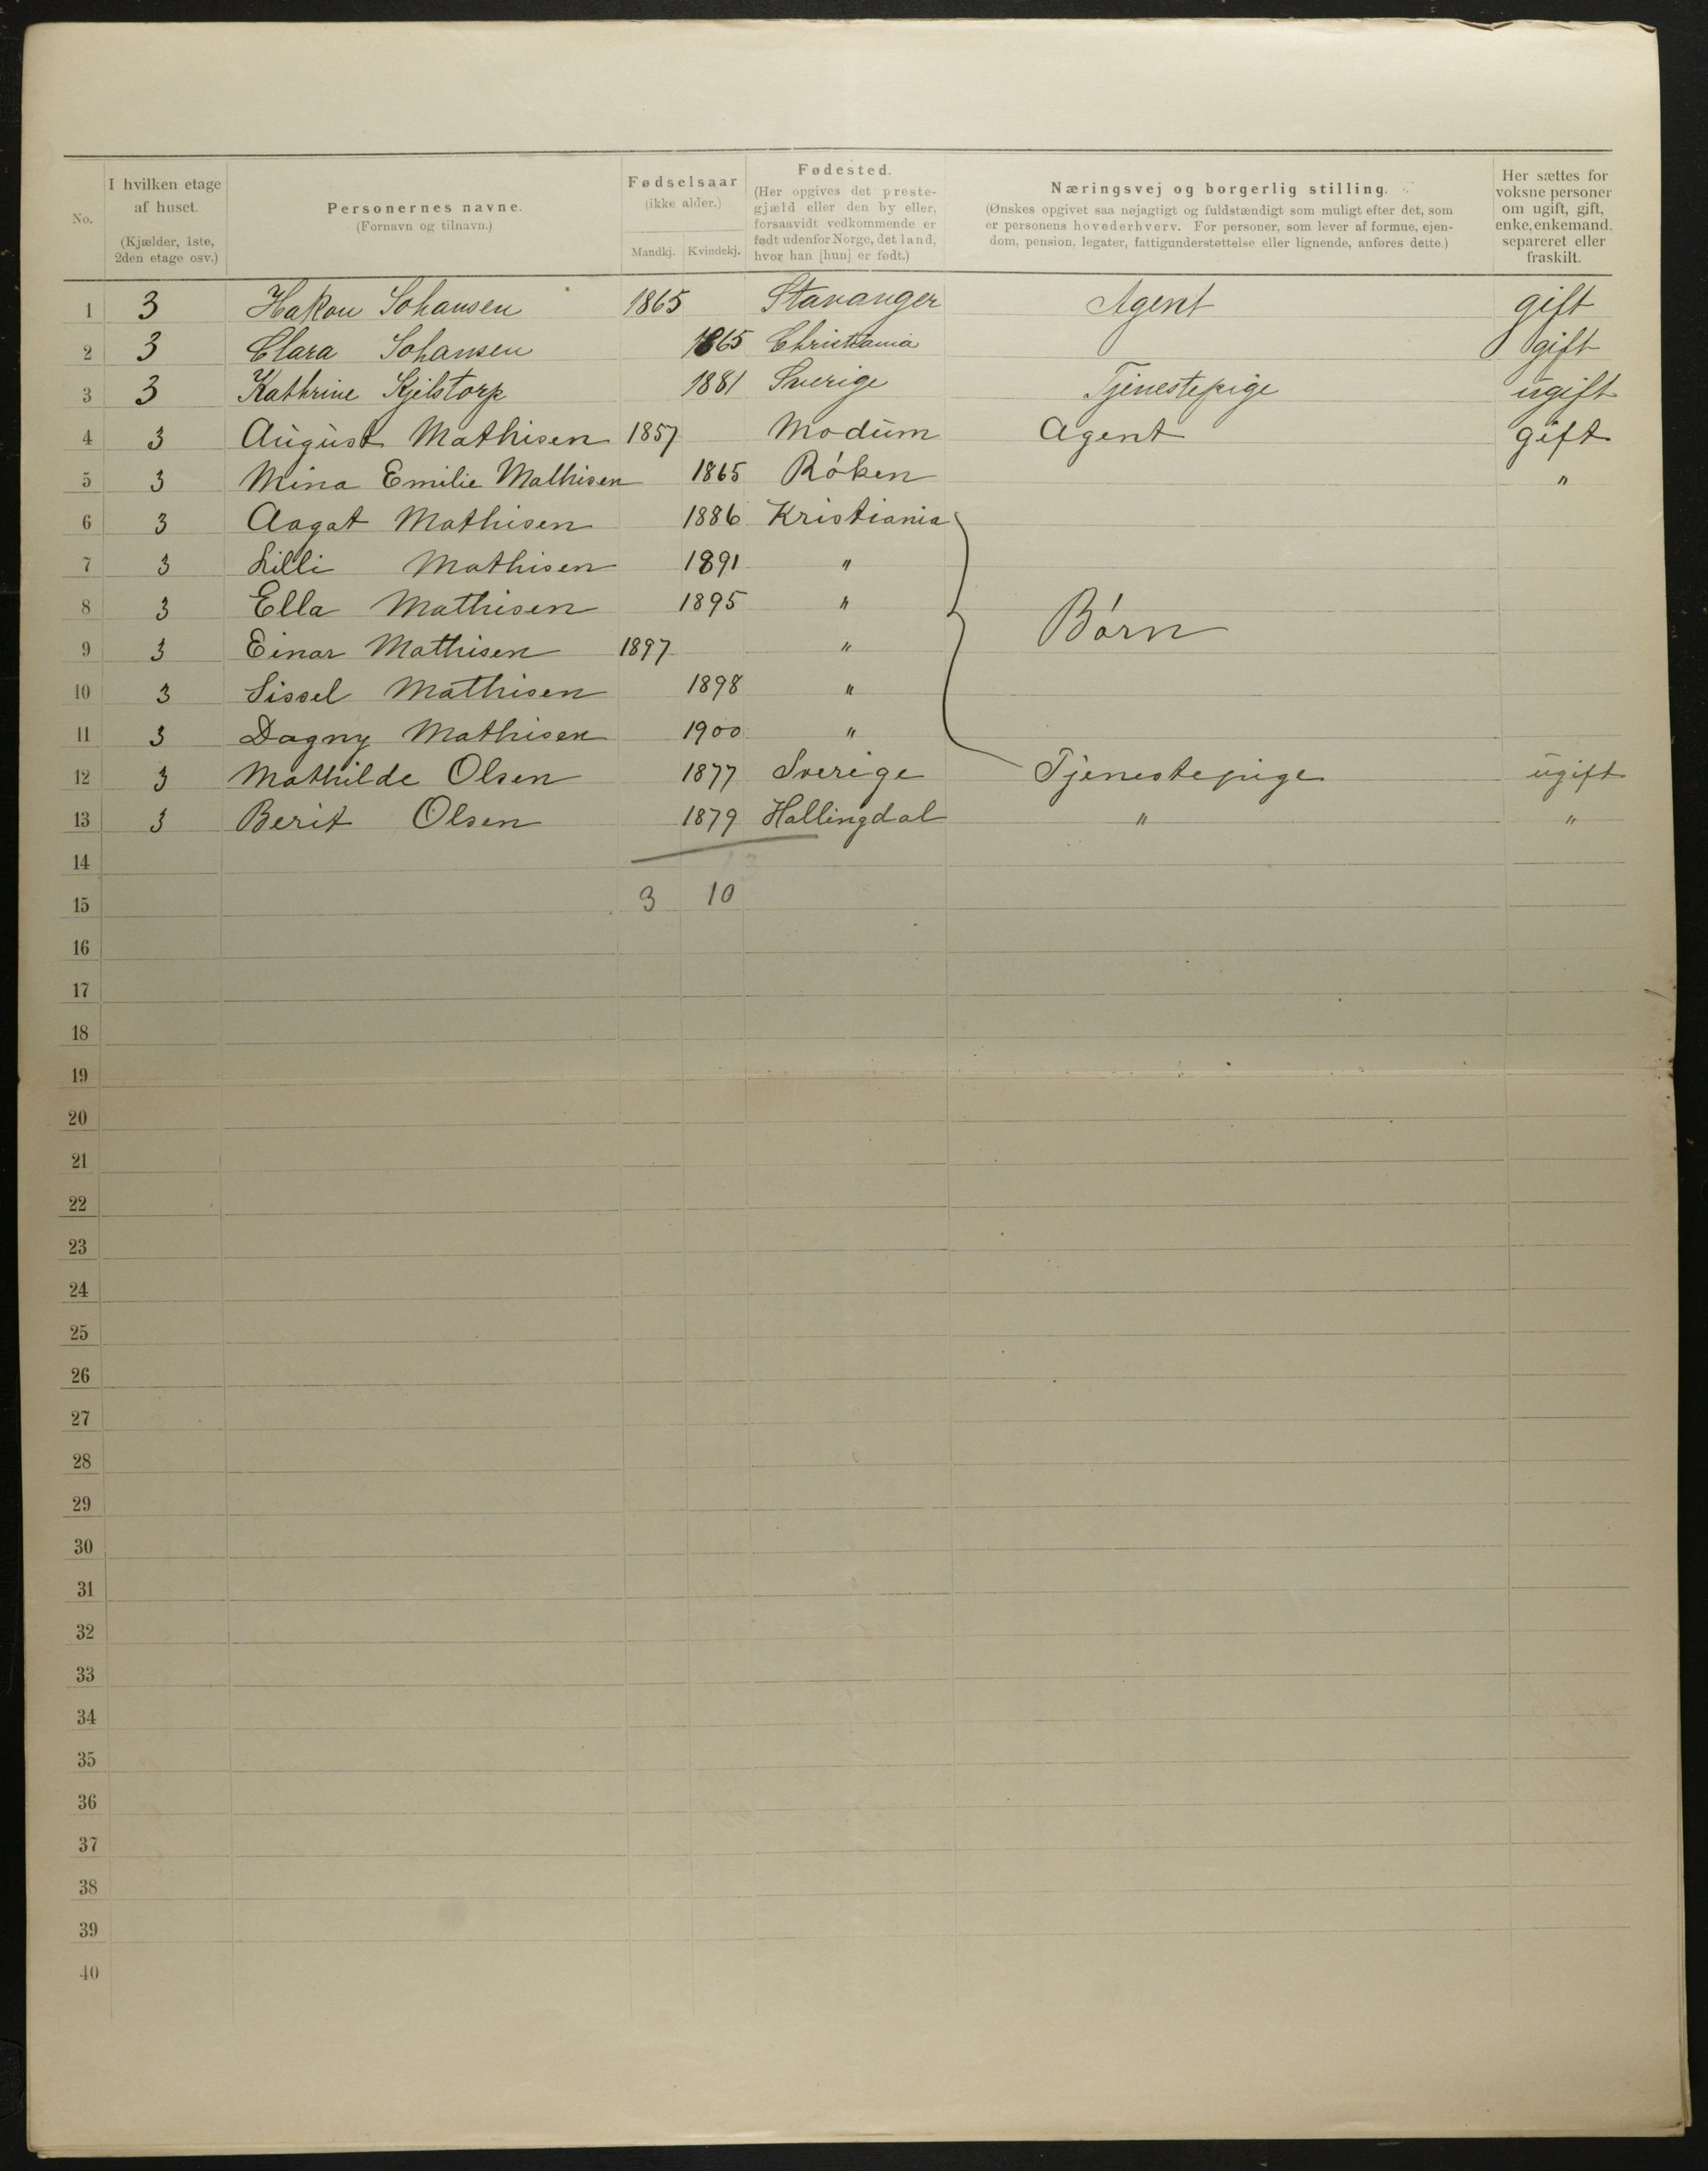 No.
I hvilken etage af huset. (Kjælder, 1ste, 2den etage osv.)
Personernes navne. (Fornavn og tilnavn.)
Fødselsaar (ikke alder.) Mandkj. Kvindekj.
Fødested. (Her opgives det prestegjæld eller den by eller, forsaavidt vedkommende er født udenfor Norge, det land, hvor han [hun] er født.)
Næringsvej og borgerlig stilling. (Ønskes opgivet saa nøjagtigt og fuldstændigt som muligt efter det, som er personens hovederhverv. For personer, som lever af formue, ejendom, pension, legater, fattigunderstøttelse eller lignende, anføres dette.)
Her sættes for voksne personer om ugift, gift, enke, enkemand, separeret eller fraskilt.
1 3 Hakon Johansen 1865 Stavanger Agent gift
2 3 Clara Johansen 1865 Christiania gift
3 3 Kathrine Kjilstorp 1881 Sverige Tjenestepige ugift
4 3 August Mathisen 1857 Modum Agent gift
5 3 Mina Emilie Mathisen 1865 Röken "
6 3 Aagot Mathisen 1886 Kristiania
7 3 Lilli Mathisen 1891 "
8 3 Ella Mathisen 1895 " Börn
9 3 Einar Mathisen 1897 "
10 3 Sissel Mathisen 1898 "
11 3 Dagny Mathisen 1900 "
12 3 Mathilde Olsen 1877 Sverige Tjenestepige ugift
13 3 Berit Olsen 1879 Hallingdal " "
14
15 3 10
16
17
18
19
20
21
22
23
24
25
26
27
28
29
30
31
32
33
34
35
36
37
38
39
40